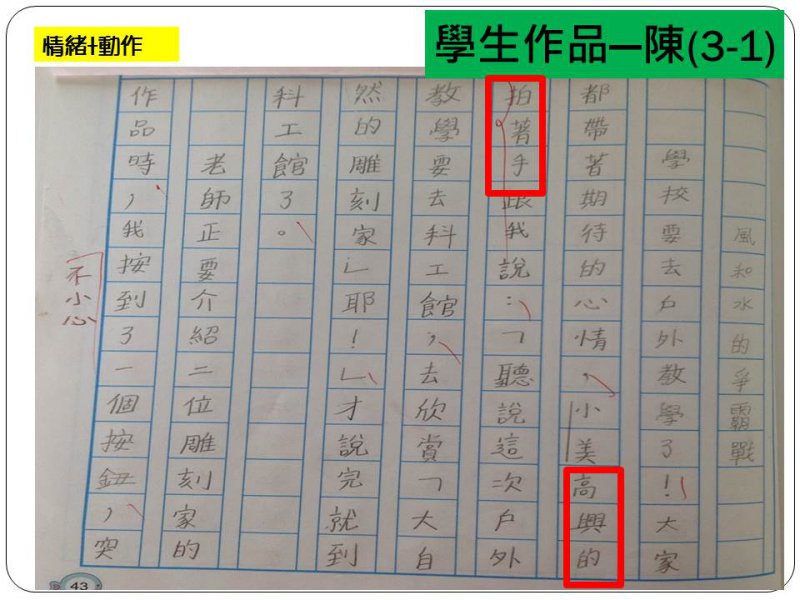 情緒+動作
學生作品—陳(3-1)
風和水的爭霸戰
學校要去戶外教學了！大家
都帶著期待的心情，小美高興的
拍著手跟我說：「聽說這次戶外
教學要去科工館，去欣賞「大自
然的雕刻家」耶！」才說完就到
科工館了。
老師正要介紹二位雕刻家的
作品時，我按到了一個按鈕，突
不小心
43